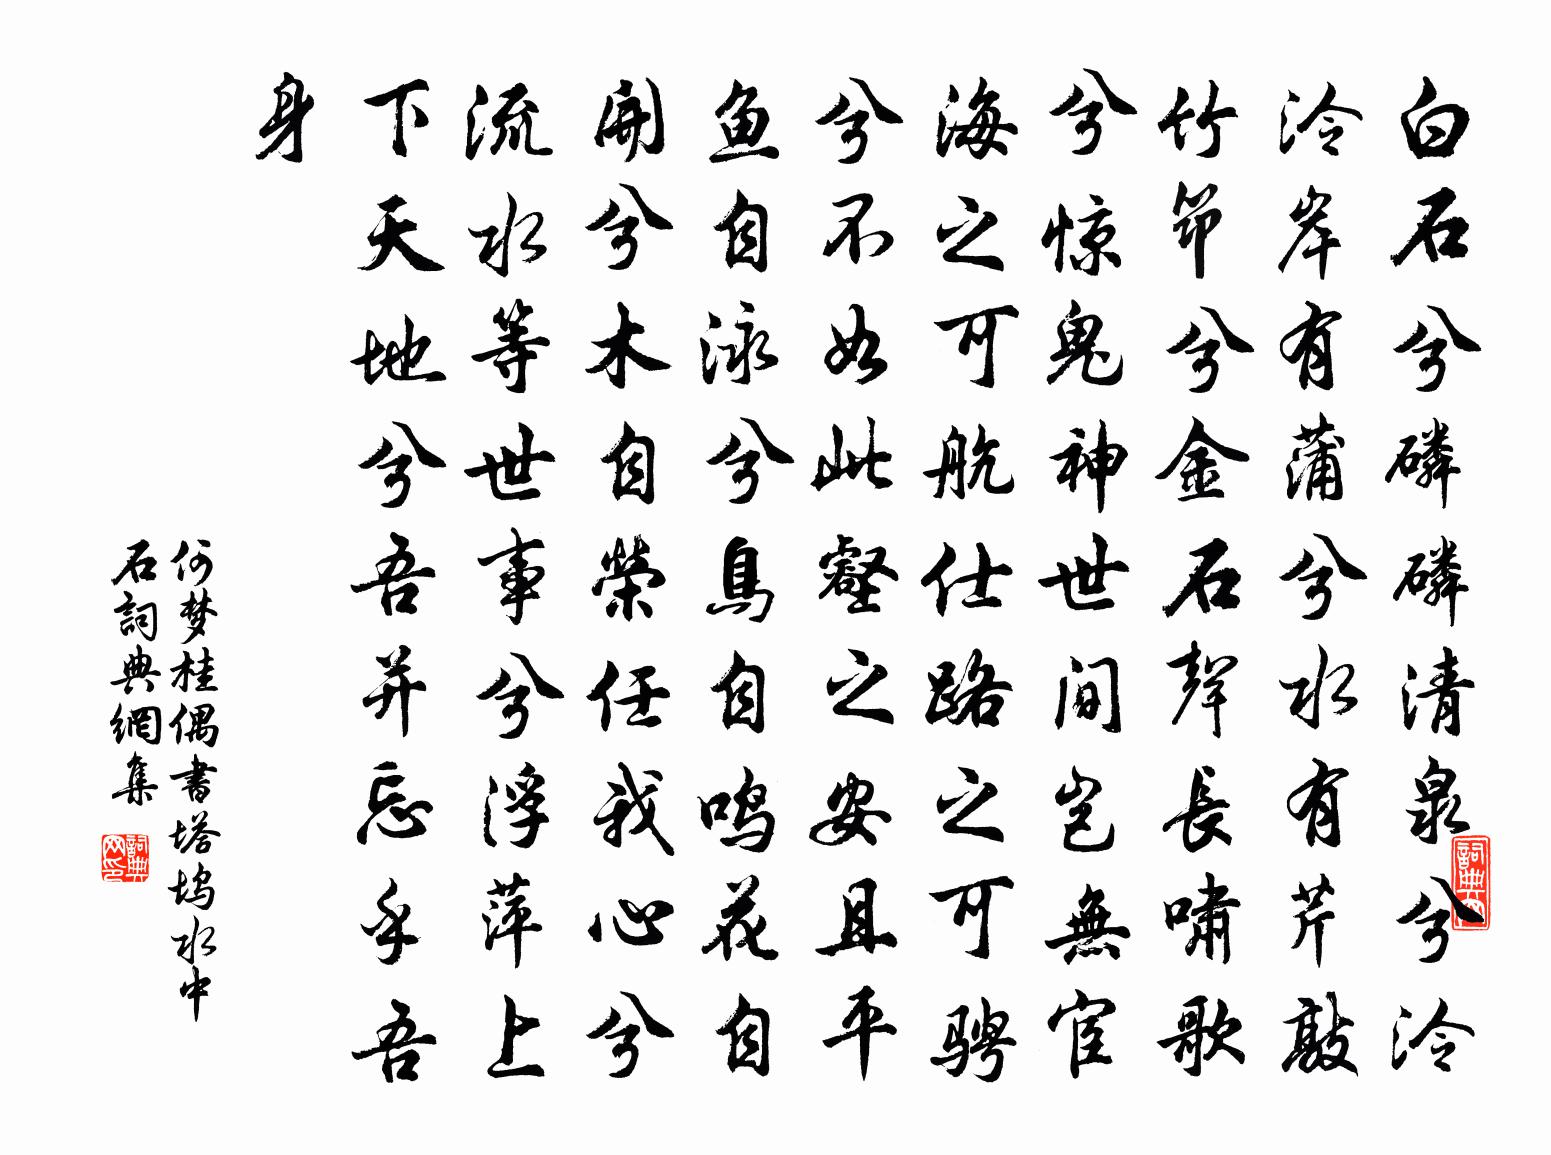 白石兮磷磷清泉兮泠
泠岸有蒲兮水有芹敲
竹节兮金石聲長嘯歌
兮惊鬼神世间岂無宦
海之可航仕路之可骋
兮不如此壑之安且平
鱼自泳兮鳥自鸣花自
開兮木自榮任我心兮
流水等世事兮浮萍上
下天地兮吾并忘乎吾
身
何梦桂偶書塔坞水中
石詞典網集
詞典网印
詞典网